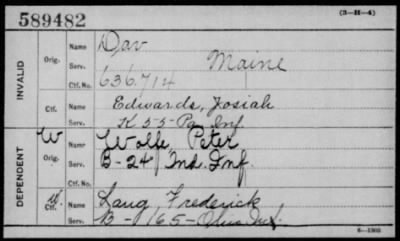 589482
(3-H-4)
INVALID
Orig.
Name
Dav
Serv.
Maine
Ctf. No.
636714
Ctf.
Name
Edwards, Josiah
Serv.
K 55 Pa Inf.
DEPENDENT
W
Orig.
Name
Wolfe Peter
Serv.
B-24 Ind. Inf.
Ctf. No.
W
Ctf.
Name
Laug, Frederick
Serv.
B-165-Ohio Inf.